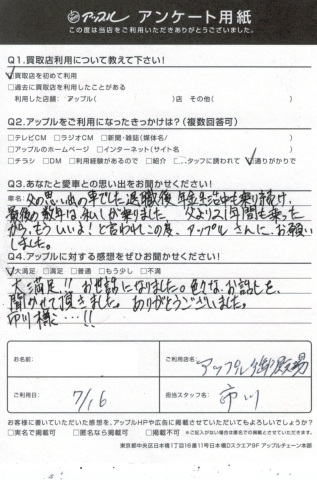 アップル アンケート用紙
この度は当店をご利用いただきありがとうございました。
Q1.買取店利用について教えて下さい!
☑買取店を初めて利用
□過去に買取店を利用したことがある
利用した店舗: アップル( )店 その他( )
Q2.アップルをご利用になったきっかけは?(複数回答可)
□テレビCM □ラジオCM □新聞・雑誌(媒体名/ )
□アップルのホームページ □インターネット(サイト名 )
□チラシ □DM □利用経験があるので □紹介 スタッフに誘われて ☑通りがかりで
Q3.あなたと愛車との思い出をお聞かせください!
車名: 父の思い出の車でした退職後、年金生活中も乗り続け、
最後の数年は私しが乗りました。父より21年間も乗った
から、もういいよ!と言われこの度、アップルさんに、お願い
しました。
Q4.アップルに対する感想をぜひお聞かせください!
☑大満足 □満足 □普通 □もう少し □不満
大満足!!お世話になりました。色々な、お話しを、
聞かせて頂きました。ありがとうございました。
市川様に…!!
お名前:
ご利用店名: アップル御殿場
ご利用日: 7/16
担当スタッフ名: 市川
お客様に書いていただいた感想を、アップルHPや広告に掲載させていただいてもよろしいでしょうか?
□実名で掲載可 □匿名なら掲載可 □掲載不可 ※ご記入がない場合は匿名での掲載とさせていただきます。
東京都中央区日本橋1丁目16番11号日本橋Dスクエア9F アップルチェーン本部